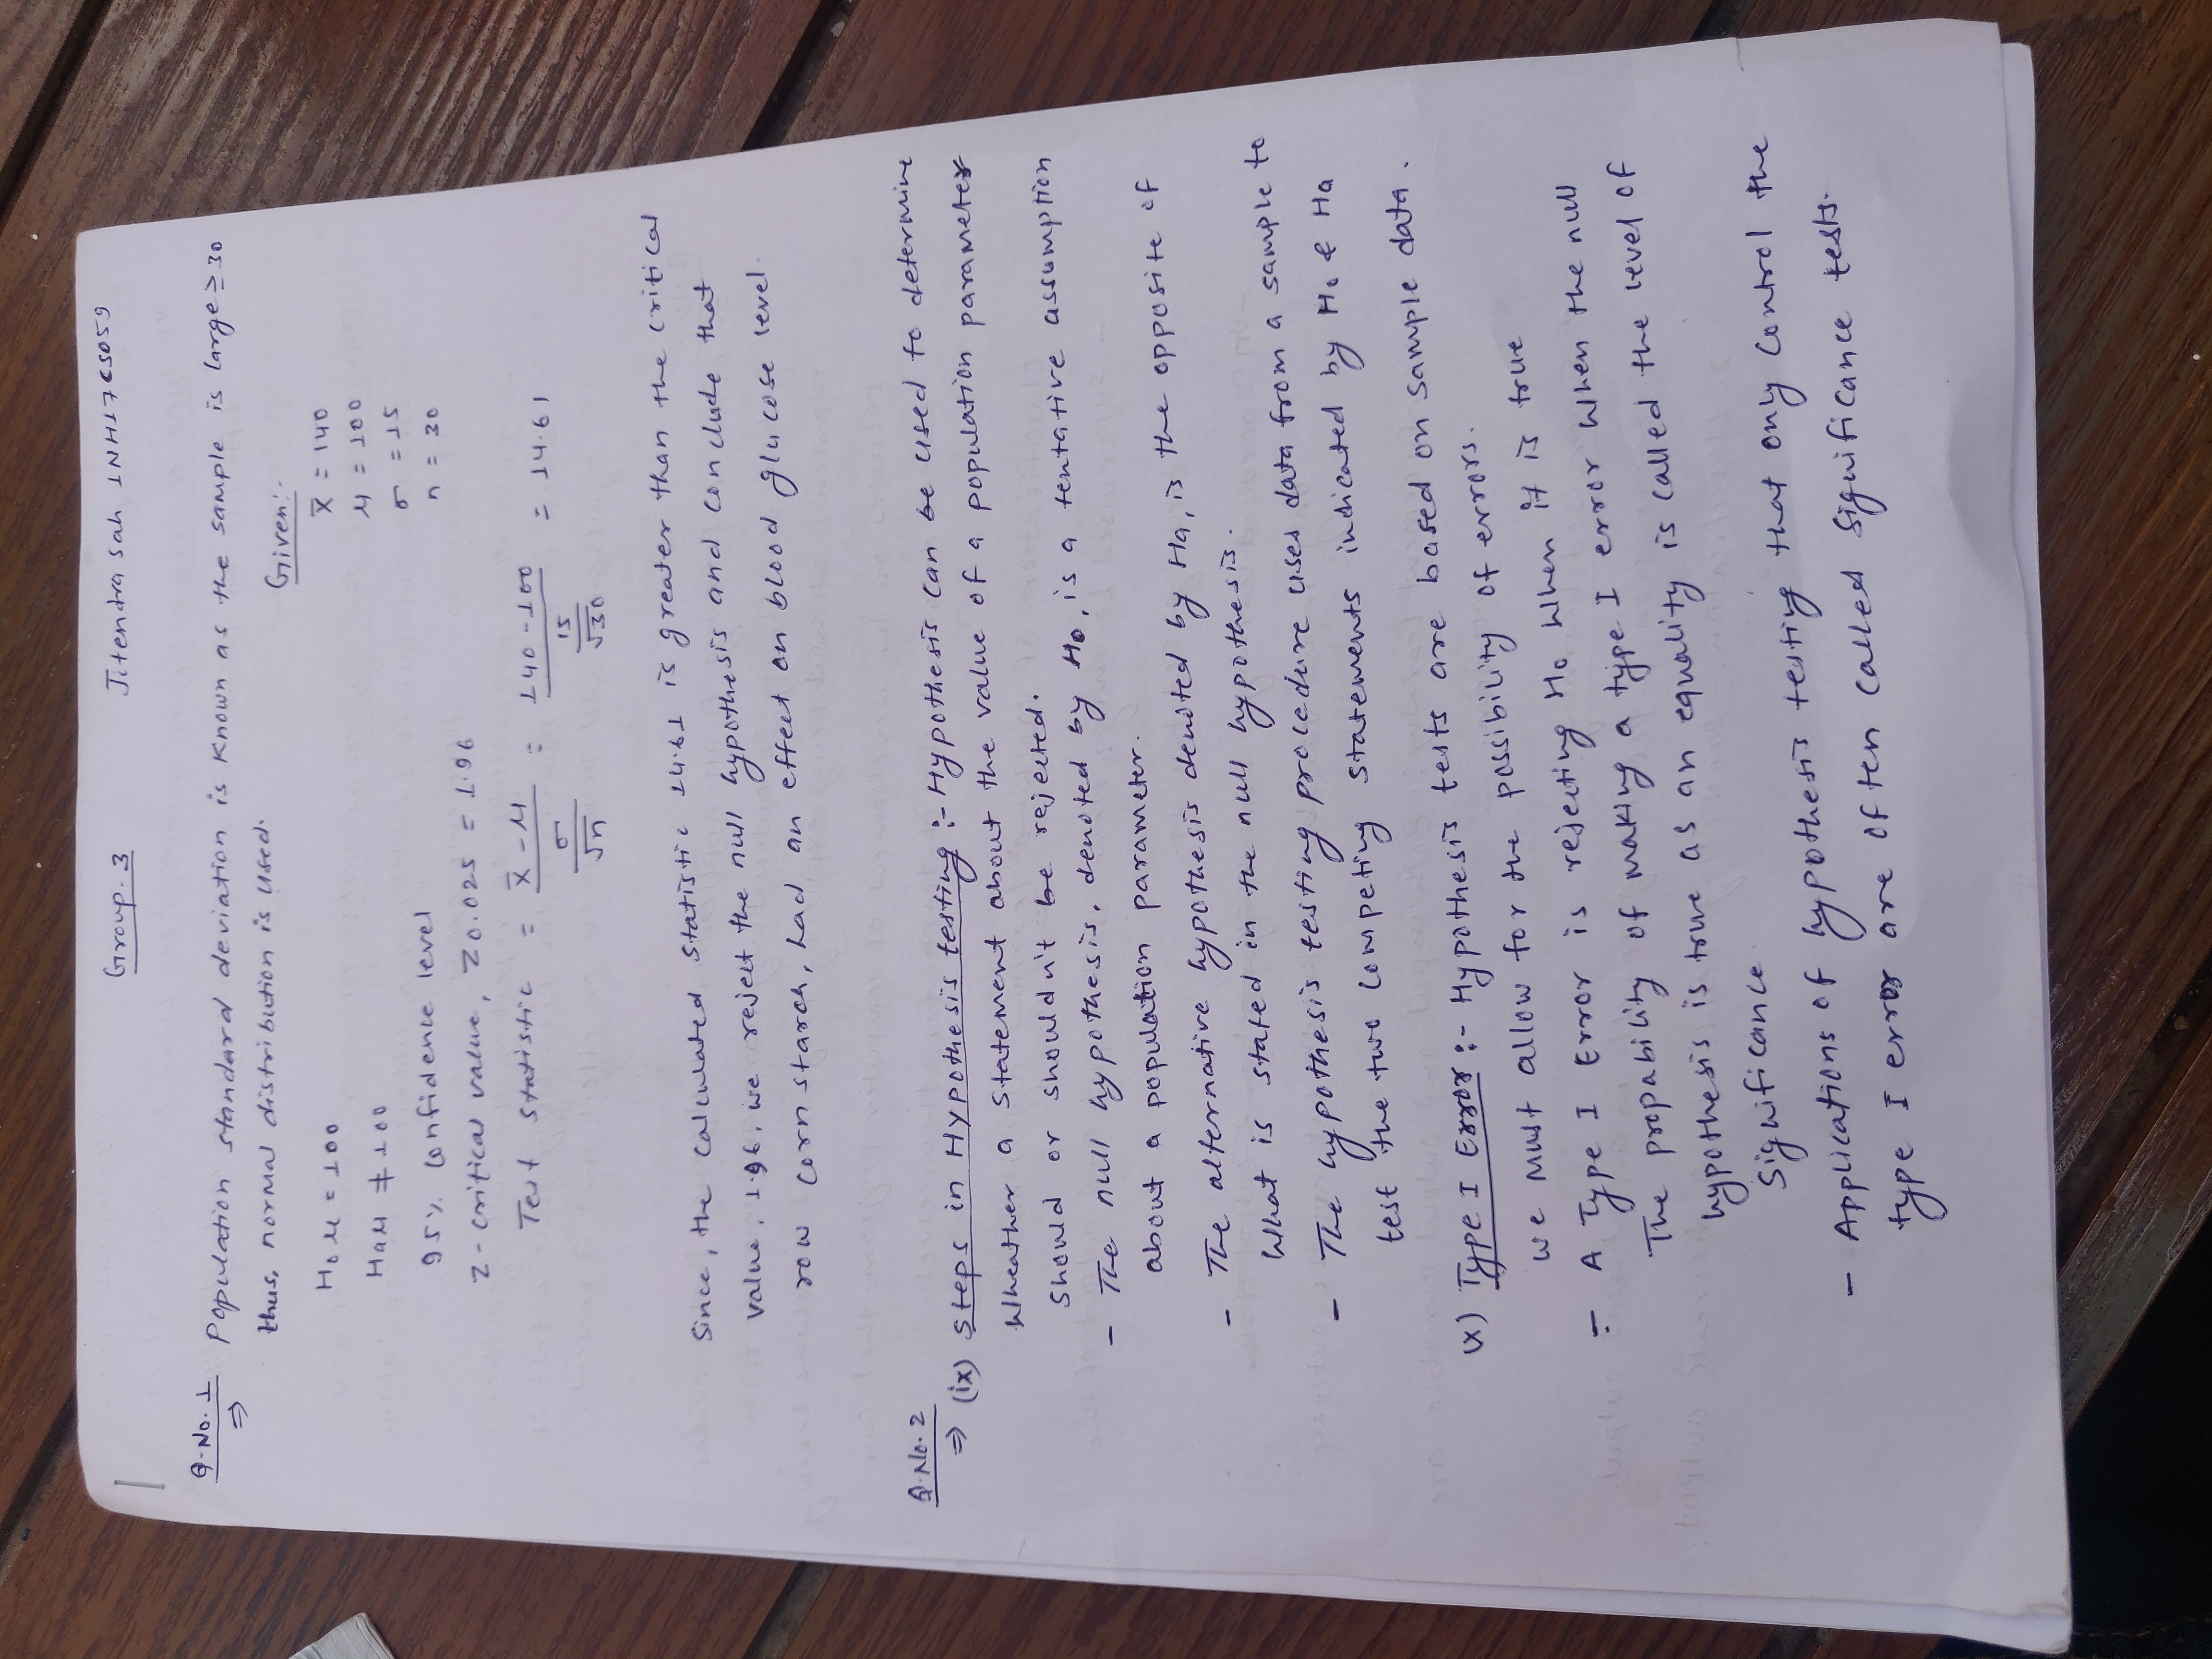 Group. 3
Jitendra Sah 1NH17CS059
Q.No. 1
⇒ Population standard deviation is known as the sample is large ≥ 30
thus, normal distribution is used.
Given:-
H₀ μ = 100
x̄ = 140
Ha μ ≠ 100
μ = 100
σ = 15
95% confidence level
n = 30
Z-critical value, Z0.025 = 1.96
Test Statistic = (x̄ - μ) / (σ / √n) = (140 - 100) / (15 / √30) = 14.61
Since, the calculated statistic 14.61 is greater than the critical
value, 1.96, we reject the null hypothesis and conclude that
row corn starch, had an effect on blood glucose level.
Q.No. 2
⇒ (ix) Steps in Hypothesis testing :- Hypothesis can be used to determine
Wheather a statement about the value of a population parameter
should or shouldn't be rejected.
- The null hypothesis, denoted by H₀, is a tentative assumption
about a population parameter.
- The alternative hypothesis denoted by Ha, is the opposite of
What is stated in the null hypothesis.
- The hypothesis testing procedure uses data from a sample to
test the two competing statements indicated by H₀ & Ha
(x) Type I Error :- Hypothesis tests are based on sample data.
we must allow for the possibility of errors.
- A Type I Error is rejecting H₀ When it is true
The propability of making a type I error When the null
hypothesis is true as an equality is called the level of
Significance
- Applications of hypothesis testing that only control the
type I error are often called significance tests.